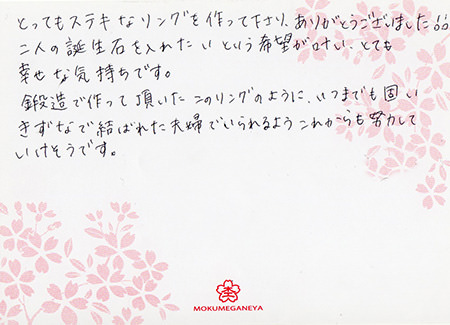 とってもステキなリングを作って下さり、ありがとうございました
二人の誕生石を入れたいという希望が叶い、とても
幸せな気持ちです。
鍛造で作って頂いたこのリングのように、いつまでも固い
きずなで結ばれた夫婦でいられるようこれからも努力して
いけそうです。
MOKUMEGANEYA